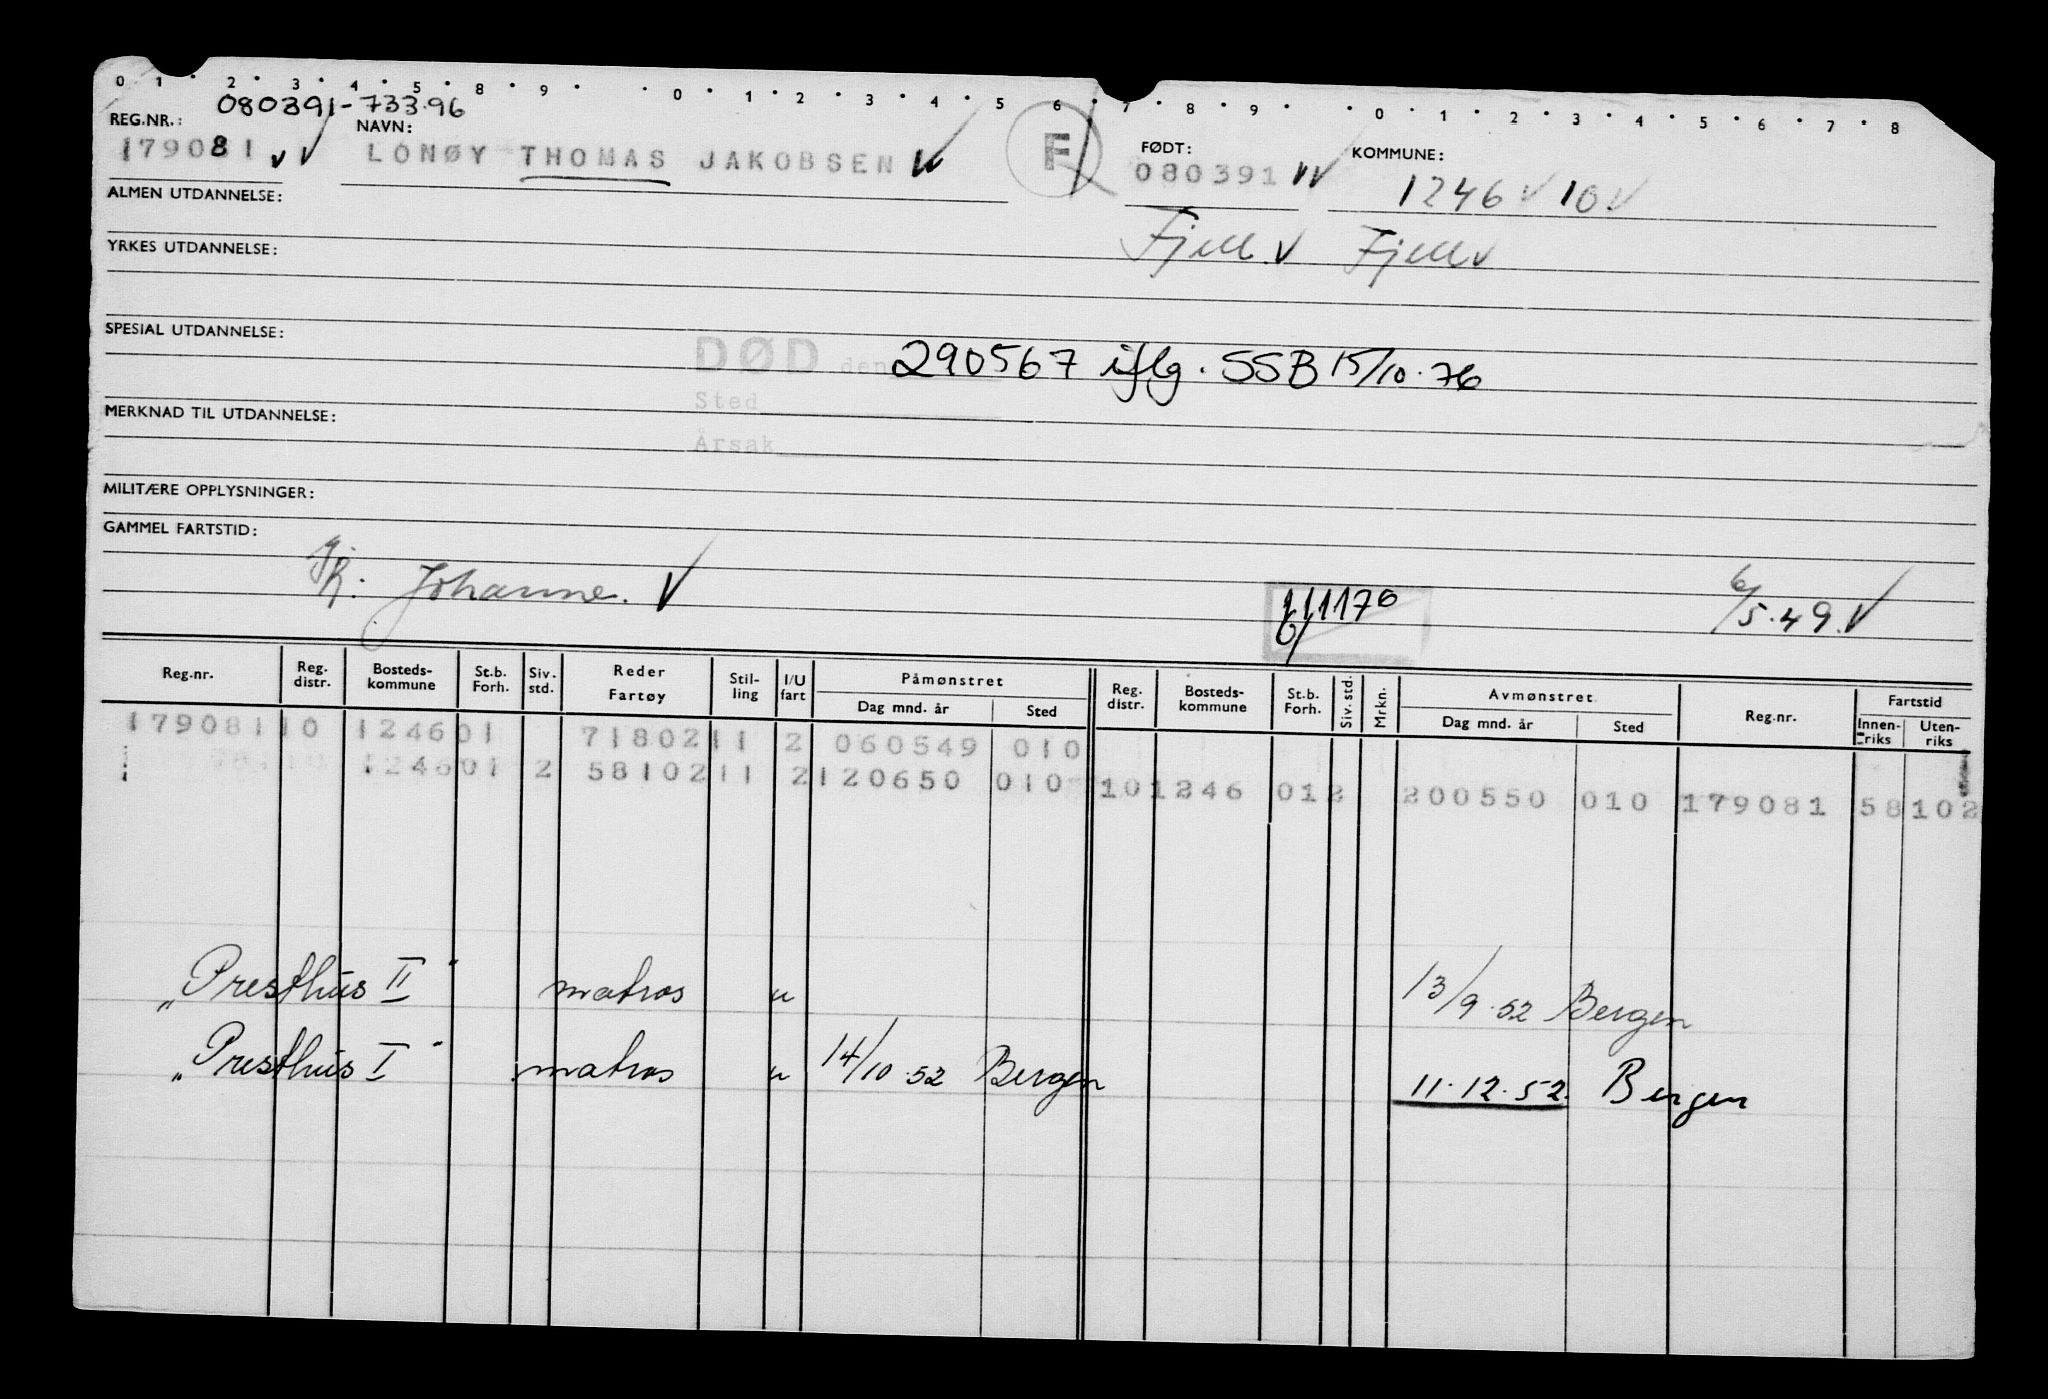 0 1 2 3 4 5 8 9 0 1 2 3 4 5 6 7 8 9 0 1 2 3 4 5 6 7 8
080391-733.96
REG.NR.: NAVN: FØDT: KOMMUNE:
179081 LONØY THOMAS JAKOBSEN F 080391 1246 10
ALMEN UTDANNELSE:
Fjell. Fjell
YRKES UTDANNELSE:
SPESIAL UTDANNELSE:
DØD den 290567 iflg. SSB 15/10.76
Sted
MERKNAD TIL UTDANNELSE:
Årsak
MILITÆRE OPPLYSNINGER:
GAMMEL FARTSTID:
Johanne. 6/5.49.
Reg.nr. Reg. distr. Bosteds-kommune St.b. Forh. Siv. std. Reder Fartøy Stil-ling I/U fart Påmønstret Dag mnd. år Sted Reg. distr. Bosteds-kommune St.b. Forh. Siv. std. Mrkn. Avmønstret Dag mnd. år Sted Reg.nr. Fartstid Innen-riks Uten-riks
179081 10 1246 01 718021 1 2 060549 010
1246 01 2 581021 1 2 120650 010 10 1246 01 2 200550 010 179081 58 102
„Presthus II" matros u 13/9.52 Bergen
„Presthus I" matros u 14/10.52 Bergen 11.12.52. Bergen